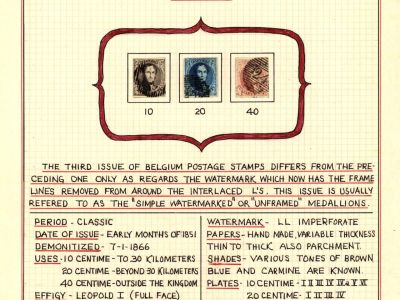 10
20
40
THE THIRD ISSUE OF BELGIUM POSTAGE STAMPS DIFFERS FROM THE PRE-
CEDING ONE ONLY AS REGARDS THE WATERMARK WHICH NOW HAS THE FRAME
LINES REMOVED FROM AROUND THE INTERLACED L'S. THIS ISSUE IS USUALLY
REFERED TO AS THE "SIMPLE WATERMARKED" OR "UNFRAMED" MEDALLIONS.
PERIOD - CLASSIC
DATE OF ISSUE - EARLY MONTHS OF 1851
DEMONITIZED - 7-1-1866
USES - 10 CENTIME - TO 30 KILOMETERS
20 CENTIME - BEYOND 30 KILOMETERS
40 CENTIME - OUTSIDE THE KINGDOM
EFFIGY - LEOPOLD I (FULL FACE)
WATERMARK - LL IMPERFORATE
PAPERS - HAND MADE, VARIABLE THICKNESS
THIN TO THICK ALSO PARCHMENT.
SHADES - VARIOUS TONES OF BROWN
BLUE AND CARMINE ARE KNOWN.
PLATES - 10 CENTIME - I II III IV V
20 CENTIME - I II III IV